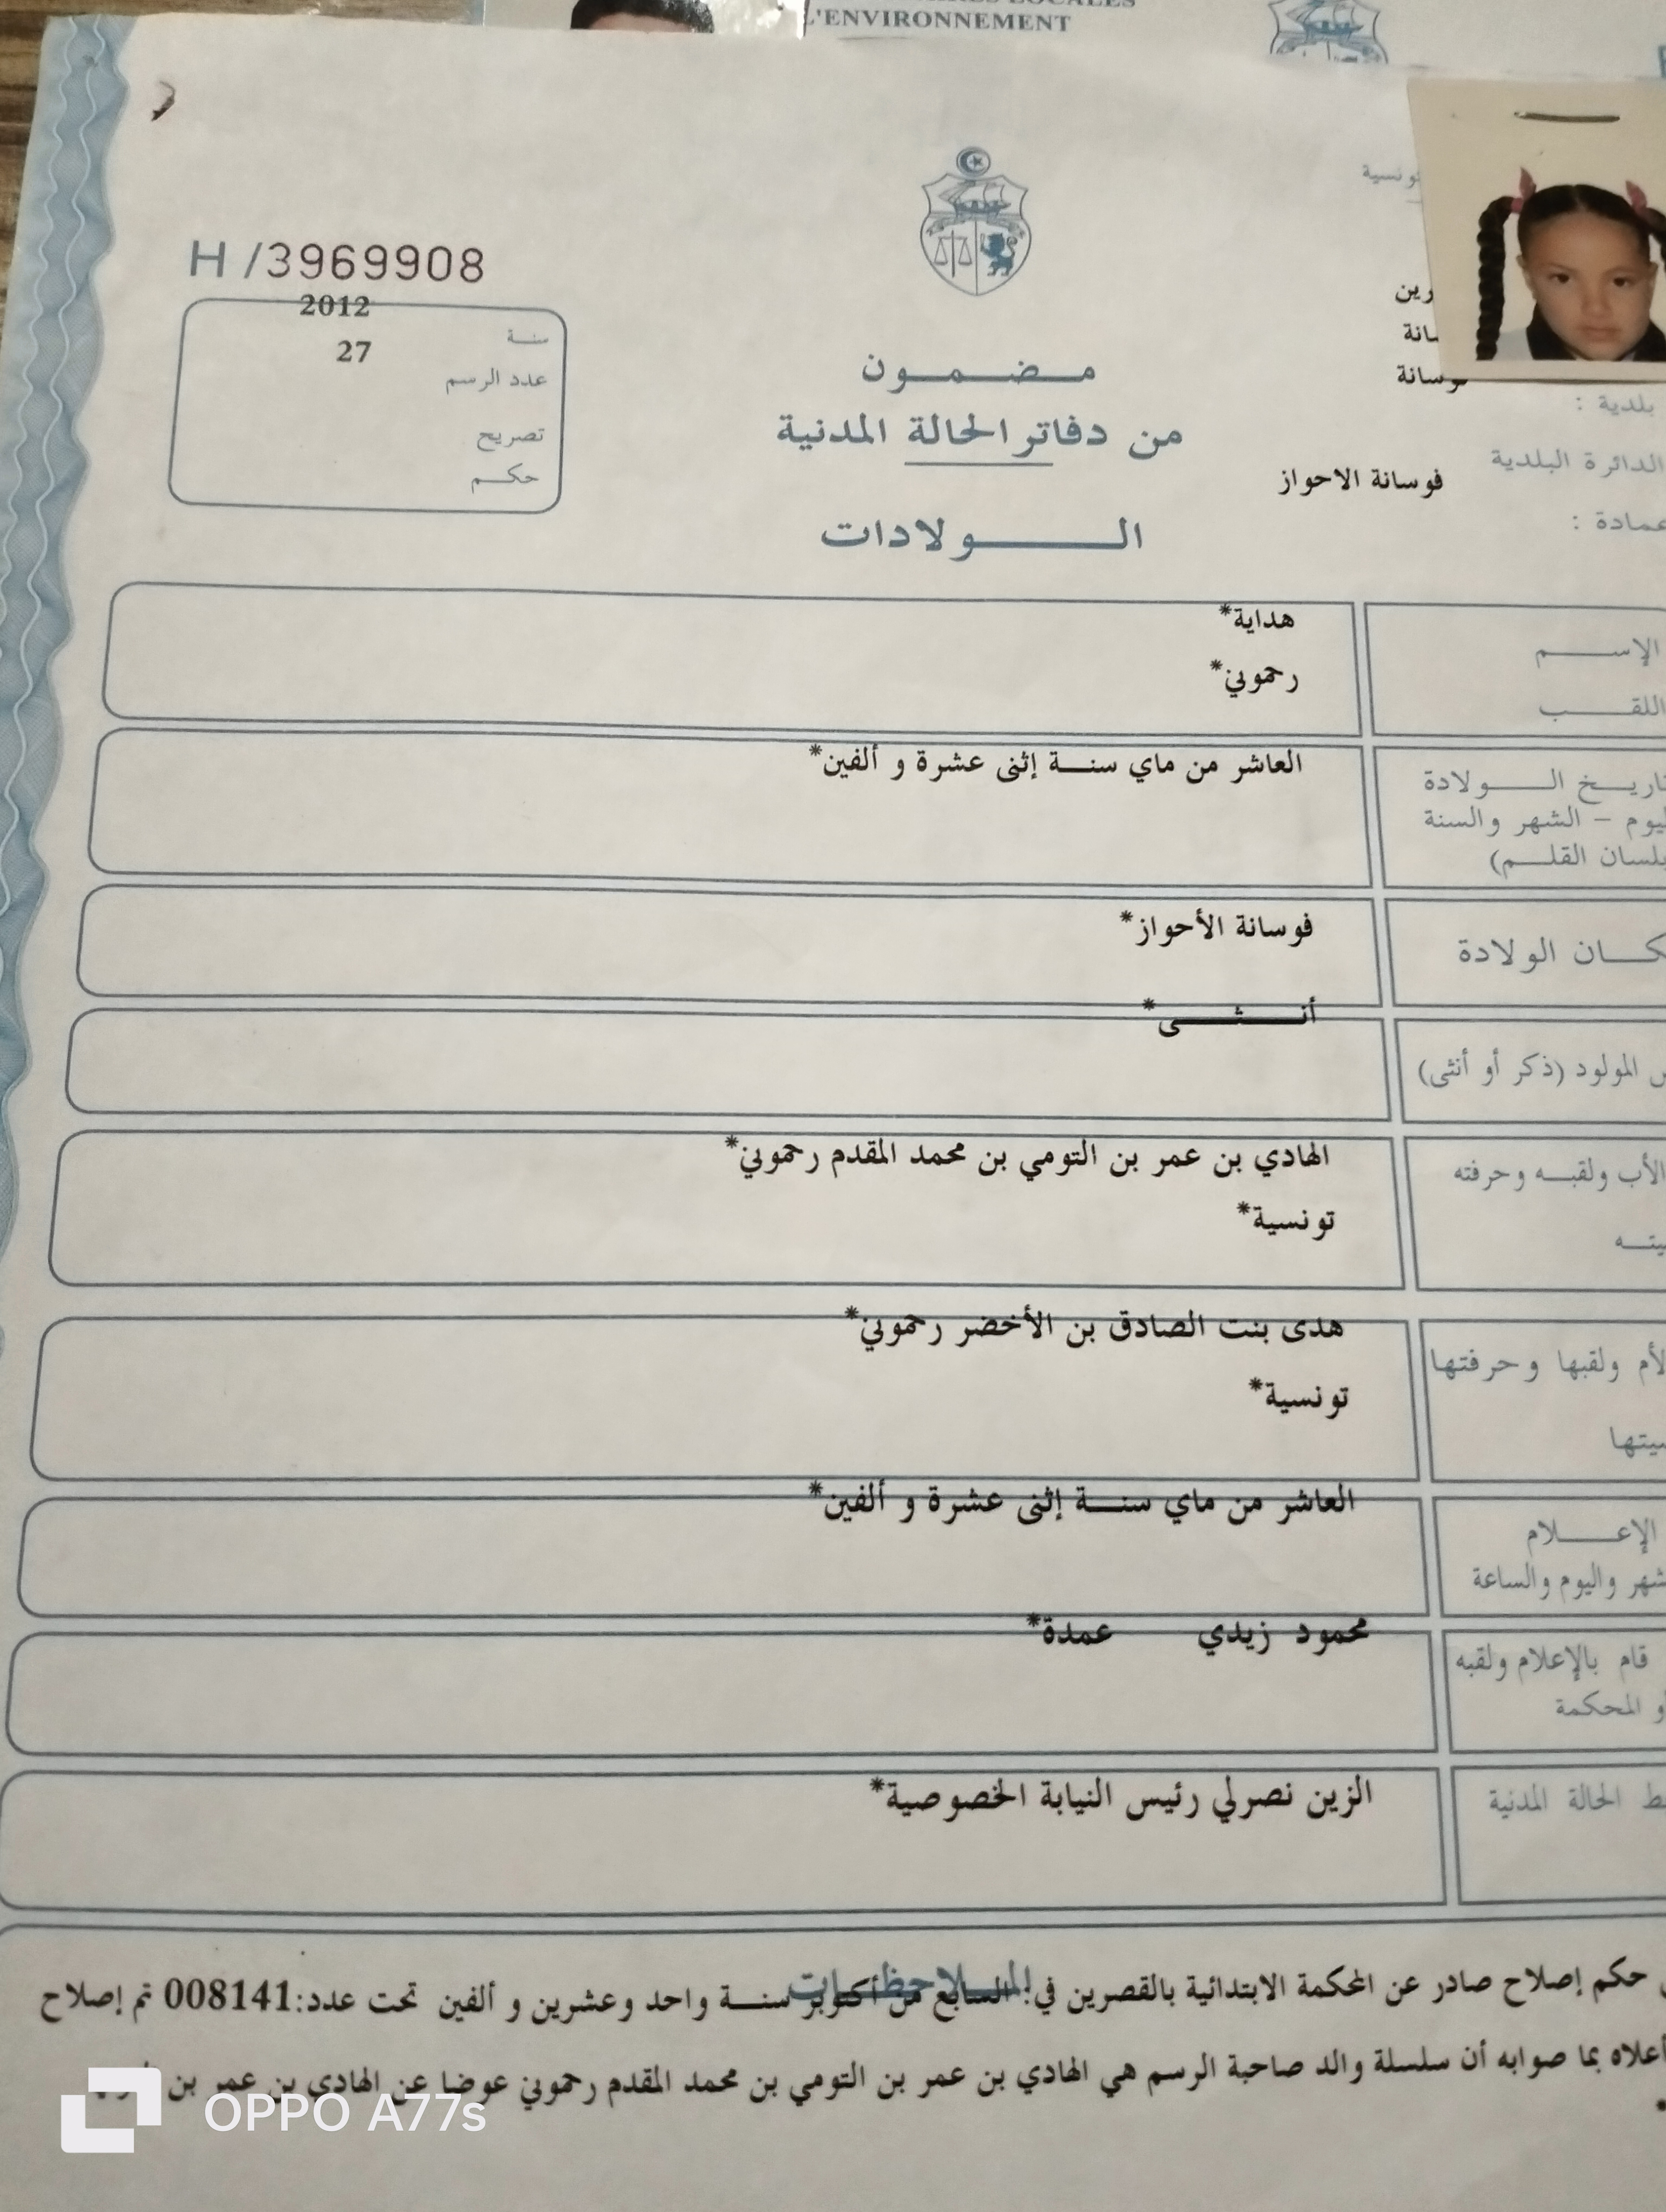 L'ENVIRONNEMENT
H /3969908
2012
سنة
27
عدد الرسم
تصريح
حكم
مضمون
من دفاتر الحالة المدنية
الولادات
فوسانة
بلدية :
الدائرة البلدية
فوسانة الاحواز
عمادة :
الإسم
هداية*
اللقب
رحموني*
تاريخ الولادة
العاشر من ماي سنة إثنى عشرة و ألفين*
اليوم – الشهر والسنة
بلسان القلم)
مكان الولادة
فوسانة الأحواز*
أنثى*
المولود (ذكر أو أنثى)
الأب ولقبه وحرفته
الهادي بن عمر بن التومي بن محمد المقدم رحموني*
تونسية*
الأم ولقبها وحرفتها
هدى بنت الصادق بن الأخضر رحموني*
تونسية*
الإعلام
العاشر من ماي سنة إثنى عشرة و ألفين*
الشهر واليوم والساعة
محمود زيدي عمدة*
قام بالإعلام ولقبه
أو المحكمة
الحالة المدنية
الزين نصرلي رئيس النيابة الخصوصية*
الملاحظات
حكم إصلاح صادر عن المحكمة الابتدائية بالقصرين في: السابع من أكتوبر سنة واحد وعشرين و ألفين تحت عدد:008141 تم إصلاح
أعلاه بما صوابه أن سلسلة والد صاحبة الرسم هي الهادي بن عمر بن التومي بن محمد المقدم رحموني عوضا عن الهادي بن عمر بن
OPPO A77s